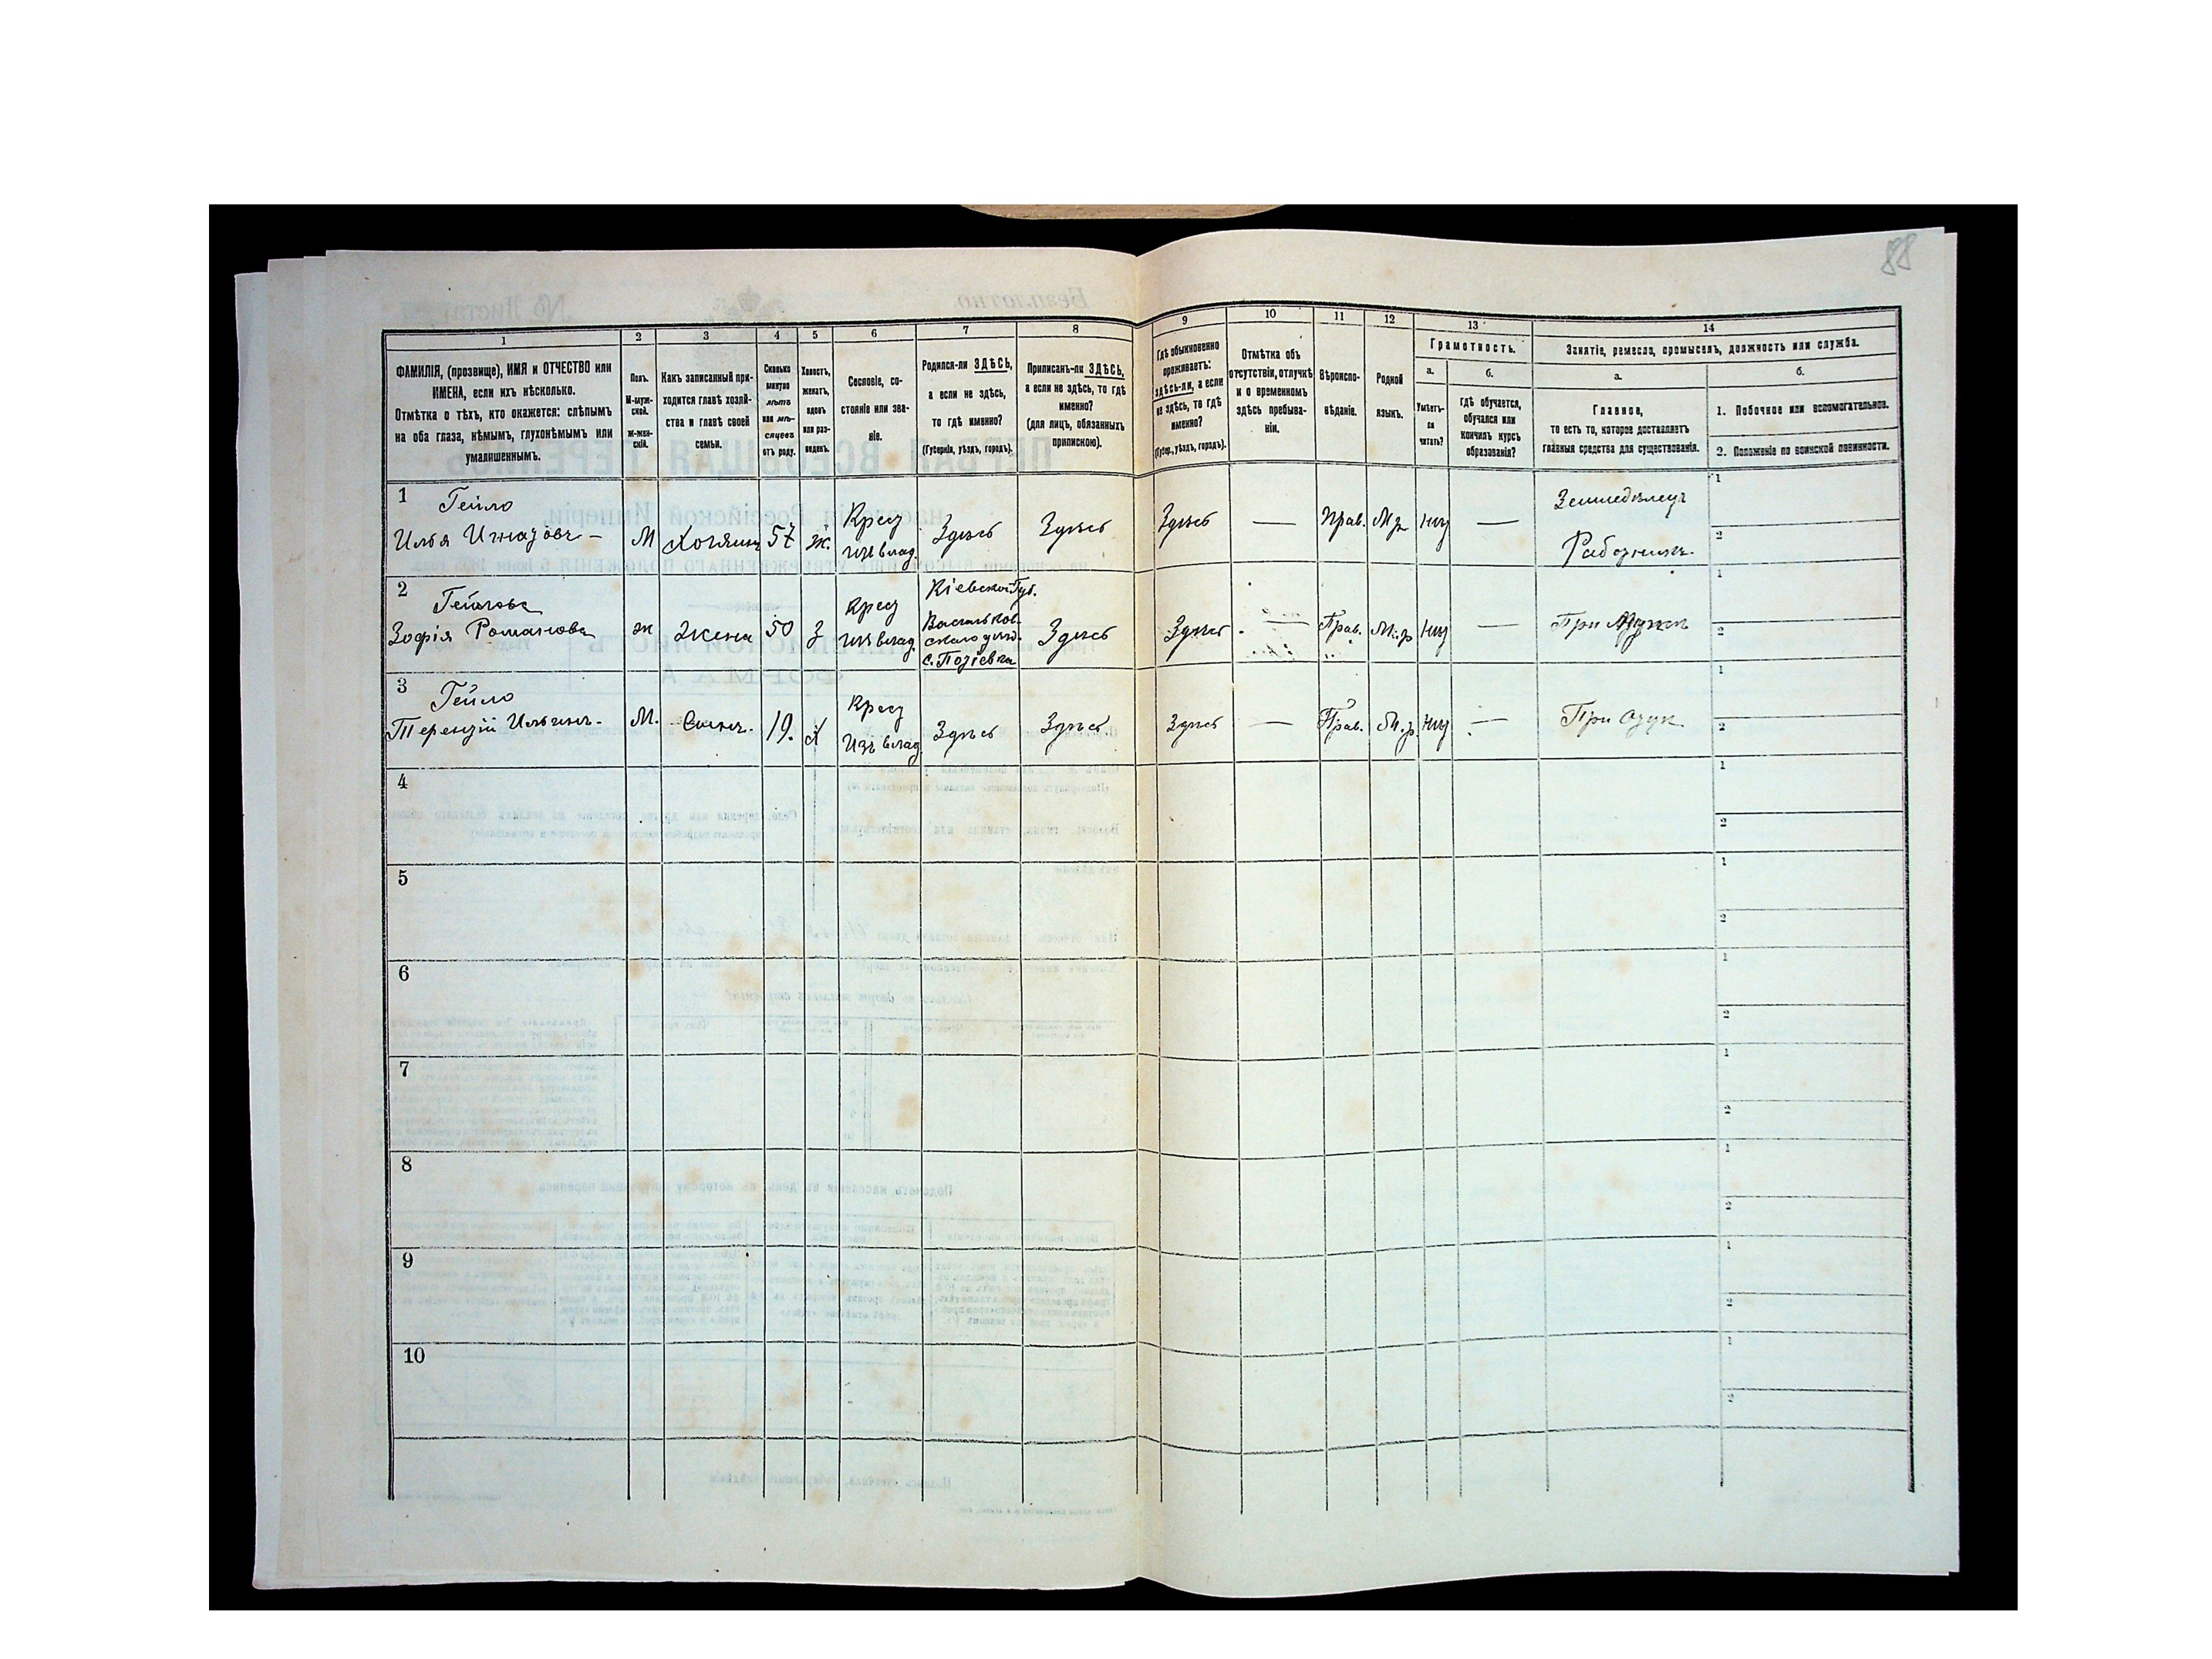 88
1 2 3 4 5 6 7 8 9 10 11 12 13 14
ФАМИЛІЯ, (прозвище), ИМЯ и ОТЧЕСТВО или
ИМЕНА, если ихъ нѣсколько.
Отмѣтка о тѣхъ, кто окажется: слѣпымъ
на оба глаза, нѣмымъ, глухонѣмымъ или
умалишеннымъ.
Полъ.
М-муж-
ской.
ж-жен-
скій.
Какъ записанный при-
ходится главѣ хозяй-
ства и главѣ своей
семьи.
Сколько
минуло
лѣтъ
или мѣ-
сяцевъ
отъ роду.
Холостъ,
женатъ,
вдовъ
или раз-
веденъ.
Сословіе, со-
стояніе или зва-
ніе.
Родился-ли ЗДѢСЬ,
а если не здѣсь,
то гдѣ именно?
(Губернія, уѣздъ, городъ).
Приписанъ-ли ЗДѢСЬ,
а если не здѣсь, то гдѣ
именно?
(для лицъ, обязанныхъ
припискою).
Гдѣ обыкновенно
проживаетъ:
здѣсь-ли, а если
не здѣсь, то гдѣ
именно?
(Губер., уѣздъ, городъ).
Отмѣтка объ
отсутствіи, отлучкѣ
и о временномъ
здѣсь пребыва-
ніи.
Вѣроиспо-
вѣданіе.
Родной
языкъ.
Грамотность.
а.
Умѣетъ-
ли
читать?
б.
Гдѣ обучается,
обучался или
кончилъ курсъ
образованія?
Занятіе, ремесло, промыселъ, должность или служба.
а.
Главное,
то есть то, которое доставляетъ
главныя средства для существованія.
б.
1. Побочное или вспомогательное.
2. Положеніе по воинской повинности.
1 Гейло Земледѣлецъ 1
Илья Игнатовъ – М Хозяинъ 57 ж. Крес изъ влад. Здѣсь Здѣсь Здѣсь — Прав. М.р нѣт — Работникъ 2
2 Гейлова Кіевской Губ. 1
Зофія Романова ж Жена 50 З Крес изъ влад. Васильков- Здѣсь Здѣсь Прав. М.р нѣт — При мужѣ 2
скаго уѣзд.
3 Гейло 1
Терентій Ильинъ. М. Сынъ. 19. Х Крес Изъ влад. Здѣсь Здѣсь Здѣсь — Прав. М.р. нѣт — При отцѣ 2
4 1
2
5 1
2
6 1
2
7 1
2
8 1
2
9 1
2
10 1
2